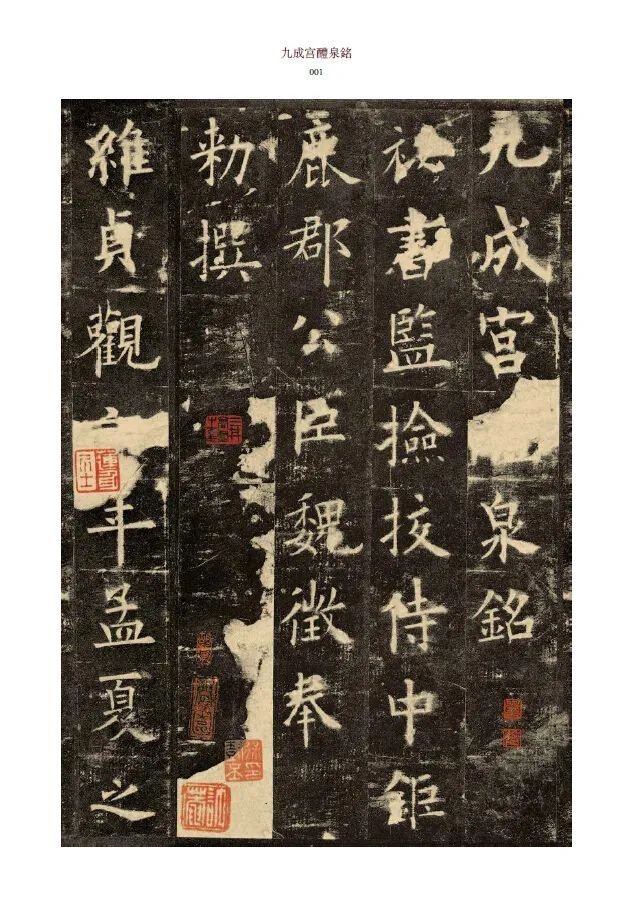 九成宫醴泉銘
001
九成宫泉銘
祕書監撿挍侍中鉅
鹿郡公臣魏徵奉
勑撰
維貞觀年孟夏之